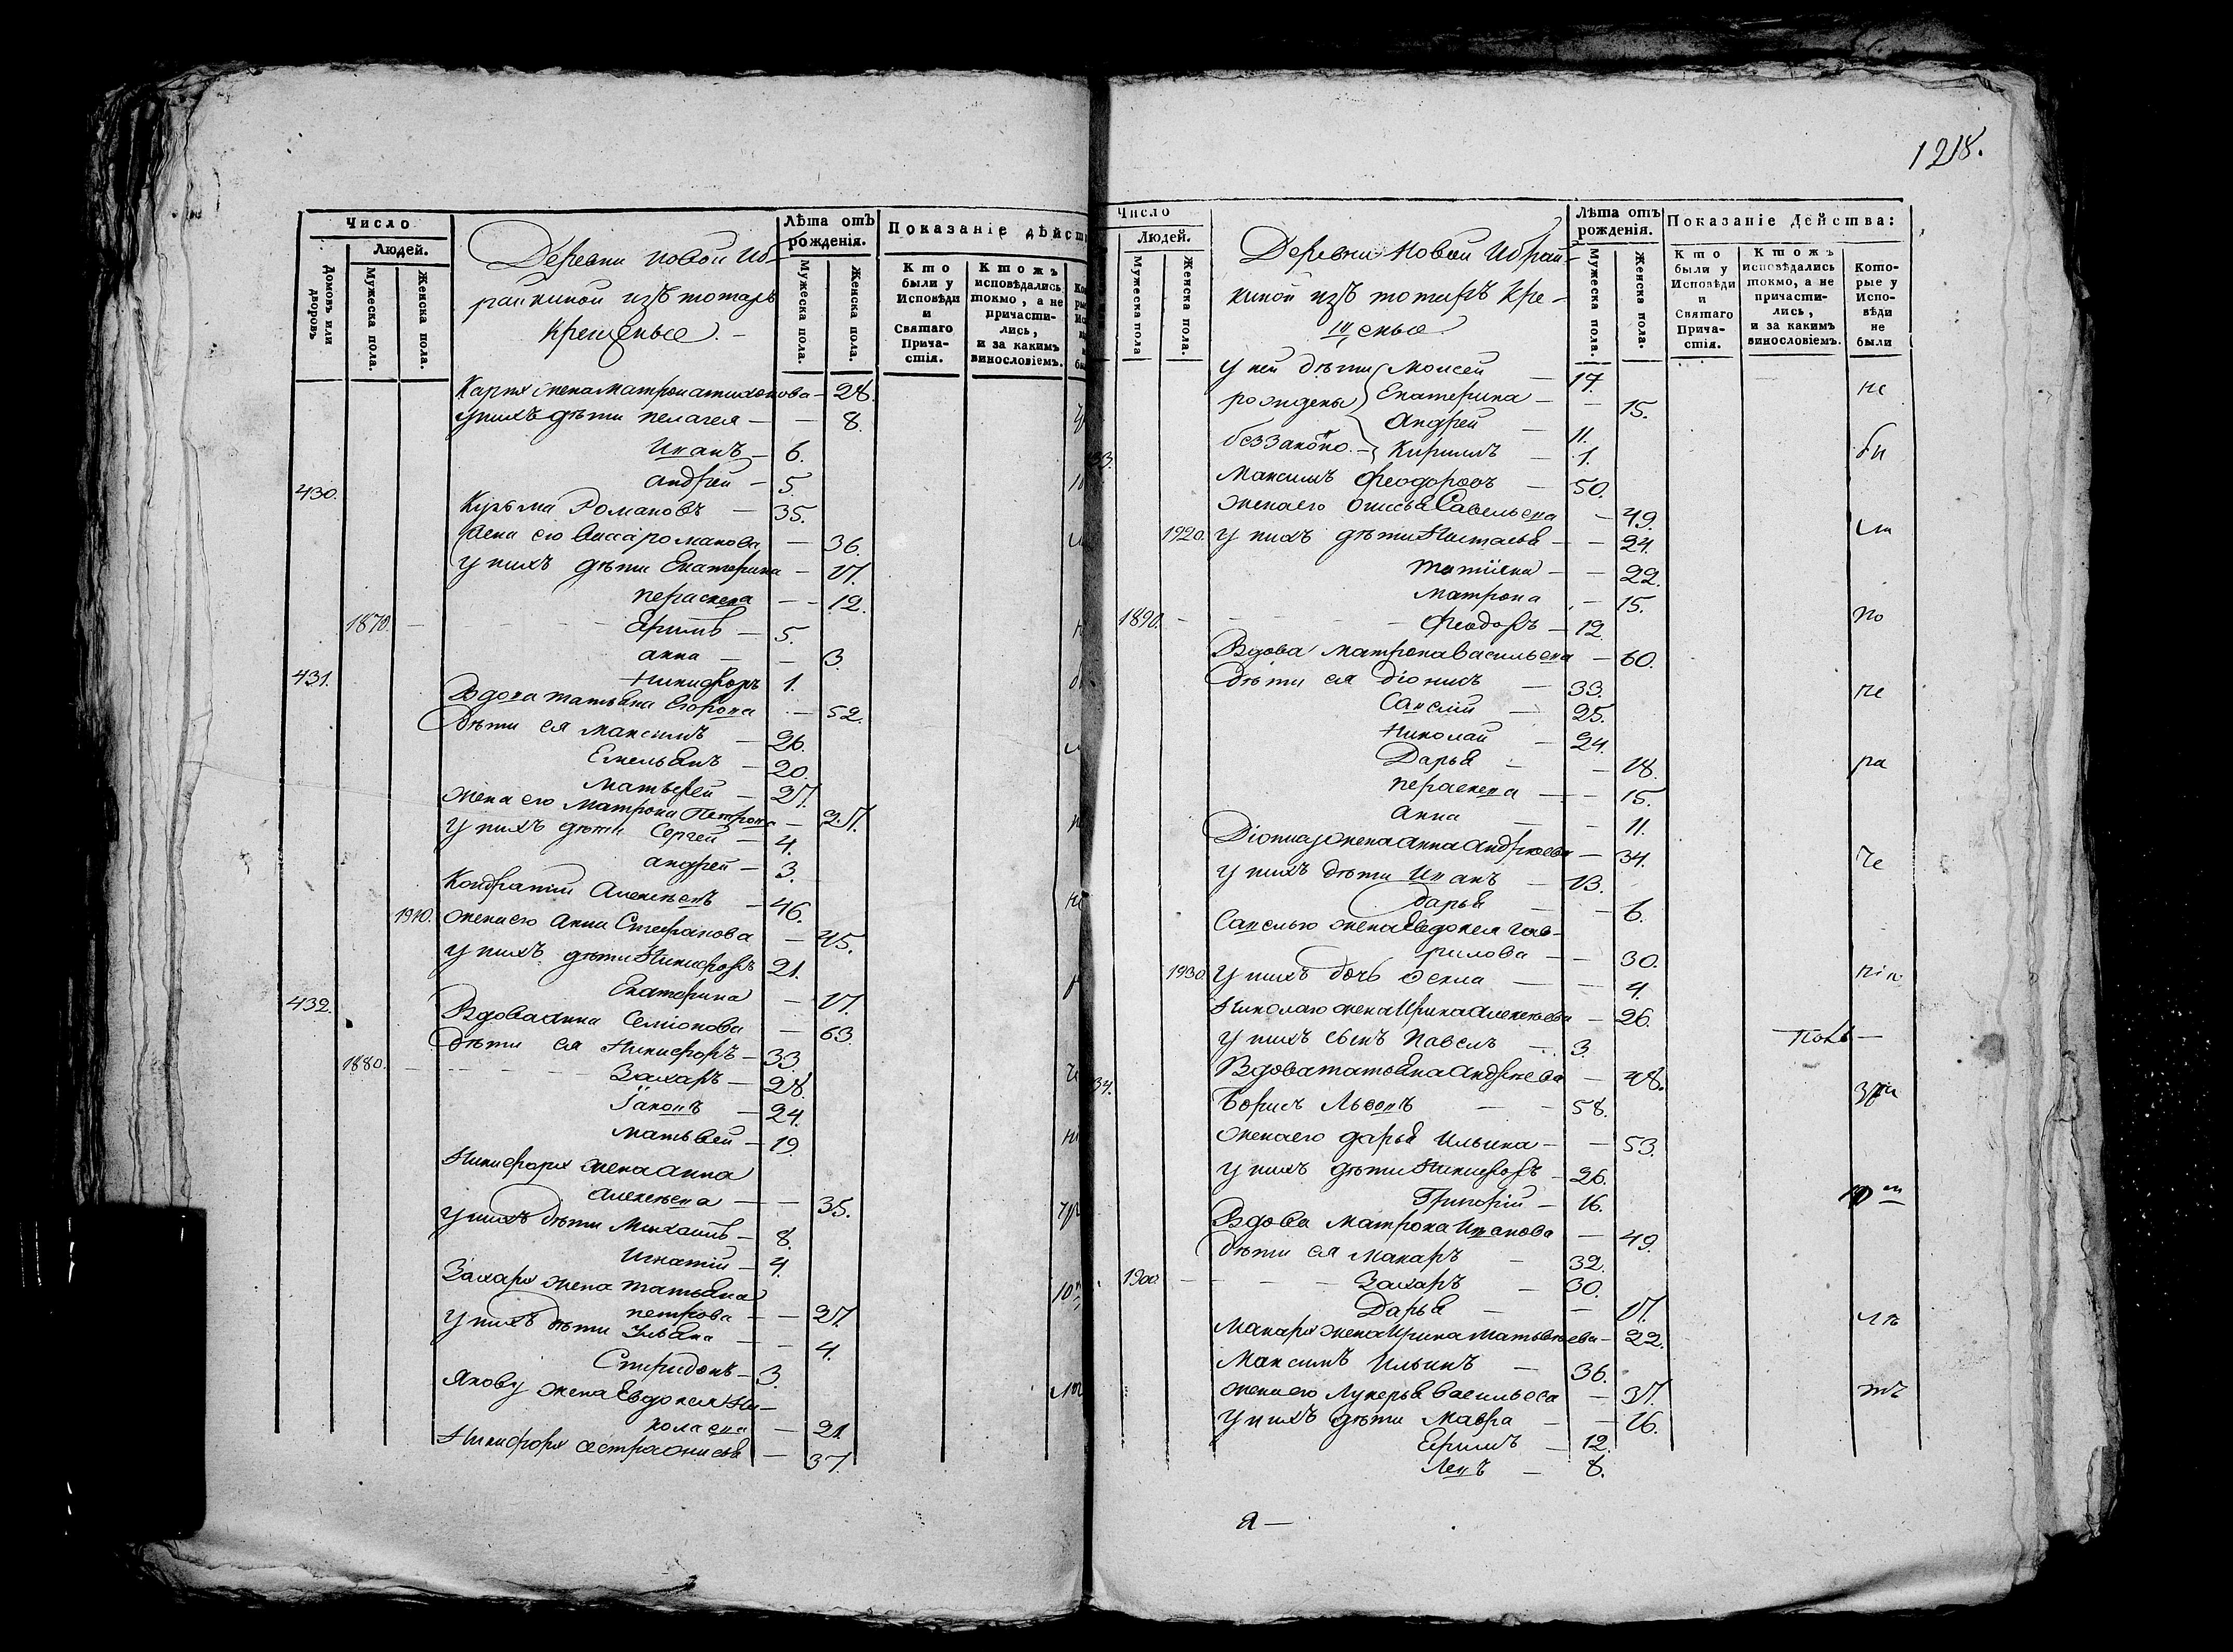 Число
Людей.
Домовъ или дворовъ
Мужеска пола.
Женска пола.
Деревни Новой Иб-
райкиной изъ татаръ
крещеные. -
Лѣта отъ рожденія.
Мужеска пола.
Женска пола.
Показаніе дѣйст
Кто были у Исповѣди и Святаго Причастія.
Ктожъ исповѣдались токмо, а не причастились, и за какимъ винословіемъ.
Карпа жена Матрона Тихонова - 28.
у нихъ дѣти Пелагея - - 8.
Иванъ - 6.
Андрей - 5.
430. Кузьма Романовъ - 35.
Жена его Романова - 36.
у нихъ дѣти Екатерина - 17.
Параскева - - 12.
1870. - Ефимъ - 5.
Анна - - 3.
Никифоръ 1.
431. Вдова Татьяна - 52.
Дѣти ея Максимъ - 26.
Емельянъ - 20.
Матвей - 27.
жена его Матрона Петрова - 27.
у нихъ дѣти Сергей - 4.
Андрей - 3.
Кондратий Алексѣевъ - 46.
1910. жена его Анна Стефанова - 45.
у нихъ дѣти Никифоръ 21.
Екатерина - 17.
432. Вдова Анна Семионова - 63.
Дѣти ея Никифоръ - 33.
1880. - Захаръ - 28.
Іаковъ - 24.
Матьвей - 19.
Никифора жена Анна
Алексеева - - 35.
у нихъ дѣти Михаилъ - 8.
Игнатий - 4.
Захара жена Татьяна
Петрова - - 27.
у нихъ дѣти Ульяна - - 4.
Спиридонъ - 3.
Якову жена Евдокея Ни-
колаева - 21.
Никифора сестра Анисья - 37.
1218.
Число
Людей.
Мужеска пола
Женска пола.
Деревни Новой Ибрай-
киной изъ татаръ кре-
щеные
Лѣта отъ рожденія.
Мужеска пола.
Женска пола.
Показаніе Действа:
Кто были у Исповѣди и Святаго Причастія.
Ктожъ исповѣдались токмо, а не причастились, и за какимъ винословіемъ.
Которые у Исповѣди не были
у ней дѣти Моисей - 17. не
рождены Екатерина - - 15.
Андрей - 11.
беззаконно. - Кирилъ - 1. бы
33. Максимъ Феодоровъ - 50.
жена его Савельева - 49.
1920. у нихъ дѣти Настасья - - 24. ли
Татияна - - 22.
Матрона - 15.
1890. - Феодоръ - 12. по
Вдова Матрона Васильева - 60.
Дѣти ея Діонисъ - 33. не
Савелий - 25.
Николай - 24.
Дарья - - 18. ра
Параскева - - 15.
Анна - - 11.
Дионисия жена Анна Андреева - 34. че
у нихъ дѣти Иванъ - 13.
Дарья - - 6.
Савелью жена Евдокея Гав-
рилова - - 30.
1930. у нихъ дочь Фекла - - 4.
Николаю жена Ирина Алексеева - 26.
у нихъ сынъ Павелъ - 3.
Вдова Татьяна Андреева - 48.
34. Борисъ Львовъ - - 58.
жена его Дарья Ильина - - 53.
у нихъ дѣти Никифоръ - 26.
Григорій - 16.
Вдова Матрона Иванова - 49.
Дѣти ея Макаръ - 32.
1900. - Захаръ - 30.
Дарья - - 17. лѣ
Макара жена Ирина Матвѣева - 22.
Максимъ Ильинъ - 36.
жена его Лукерья Васильева - 37. тъ
у нихъ дѣти Мавра - - 16.
Ефимъ - 12.
Левъ - 8.